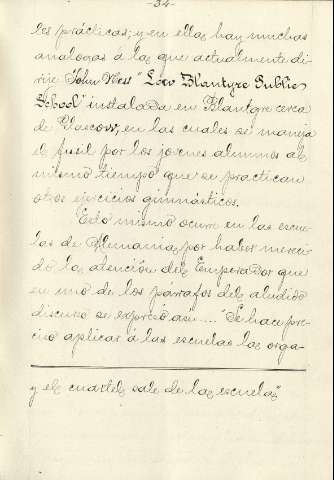 -34-
les prácticas; y en ellas hay muchas
analogas á las que actualmente di-
rije John Ness "Low Blantyre Public
School" instalada en Blantyre cerca
de Glascow, en las cuales se maneja
el fusil por los jovenes alumnos al
mismo tiempo que se practican
otros ejercicios gimnásticos.
Esto mismo ocurre en las escue-
las de Alemania, por haber mereci-
do la atención del Emperador que
en uno de los párrafos del aludido
discurso se expresó asi.... "Se hace pre-
ciso aplicar á las escuelas la orga-
y el cuartel sale de la escuela"